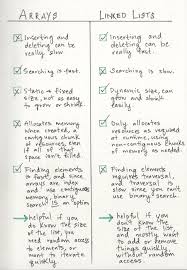 ARRAYS
Inserting and
deleting can be
really slow.
Searching is fast.
Static & fixed
size, not as easy
to grow or shrink.
Allocates memory
when created, a
contiguous chunk
of resources,
even if all of that
space isn't filled.
Finding elements
is fast, and since
arrays are index
and use contiguous
memory, binary
search is an option
→ helpful if you
do know the size
of the list, you
need random access
to elements, or
want to iterate
quickly.
LINKED LISTS
Inserting and
deleting can be
really fast.
Searching is slow.
Dynamic size, can
grow and shrink
easily.
Only allocates
resources as required
at runtime, using
non-contiguous chunks
of memory as needed.
Finding elements
requires traversal,
and traversal is
slow since you can't
use binary search.
→ helpful if you
don't know the
size of the list,
and mostly want
to add or remove
things quickly
without random
access.